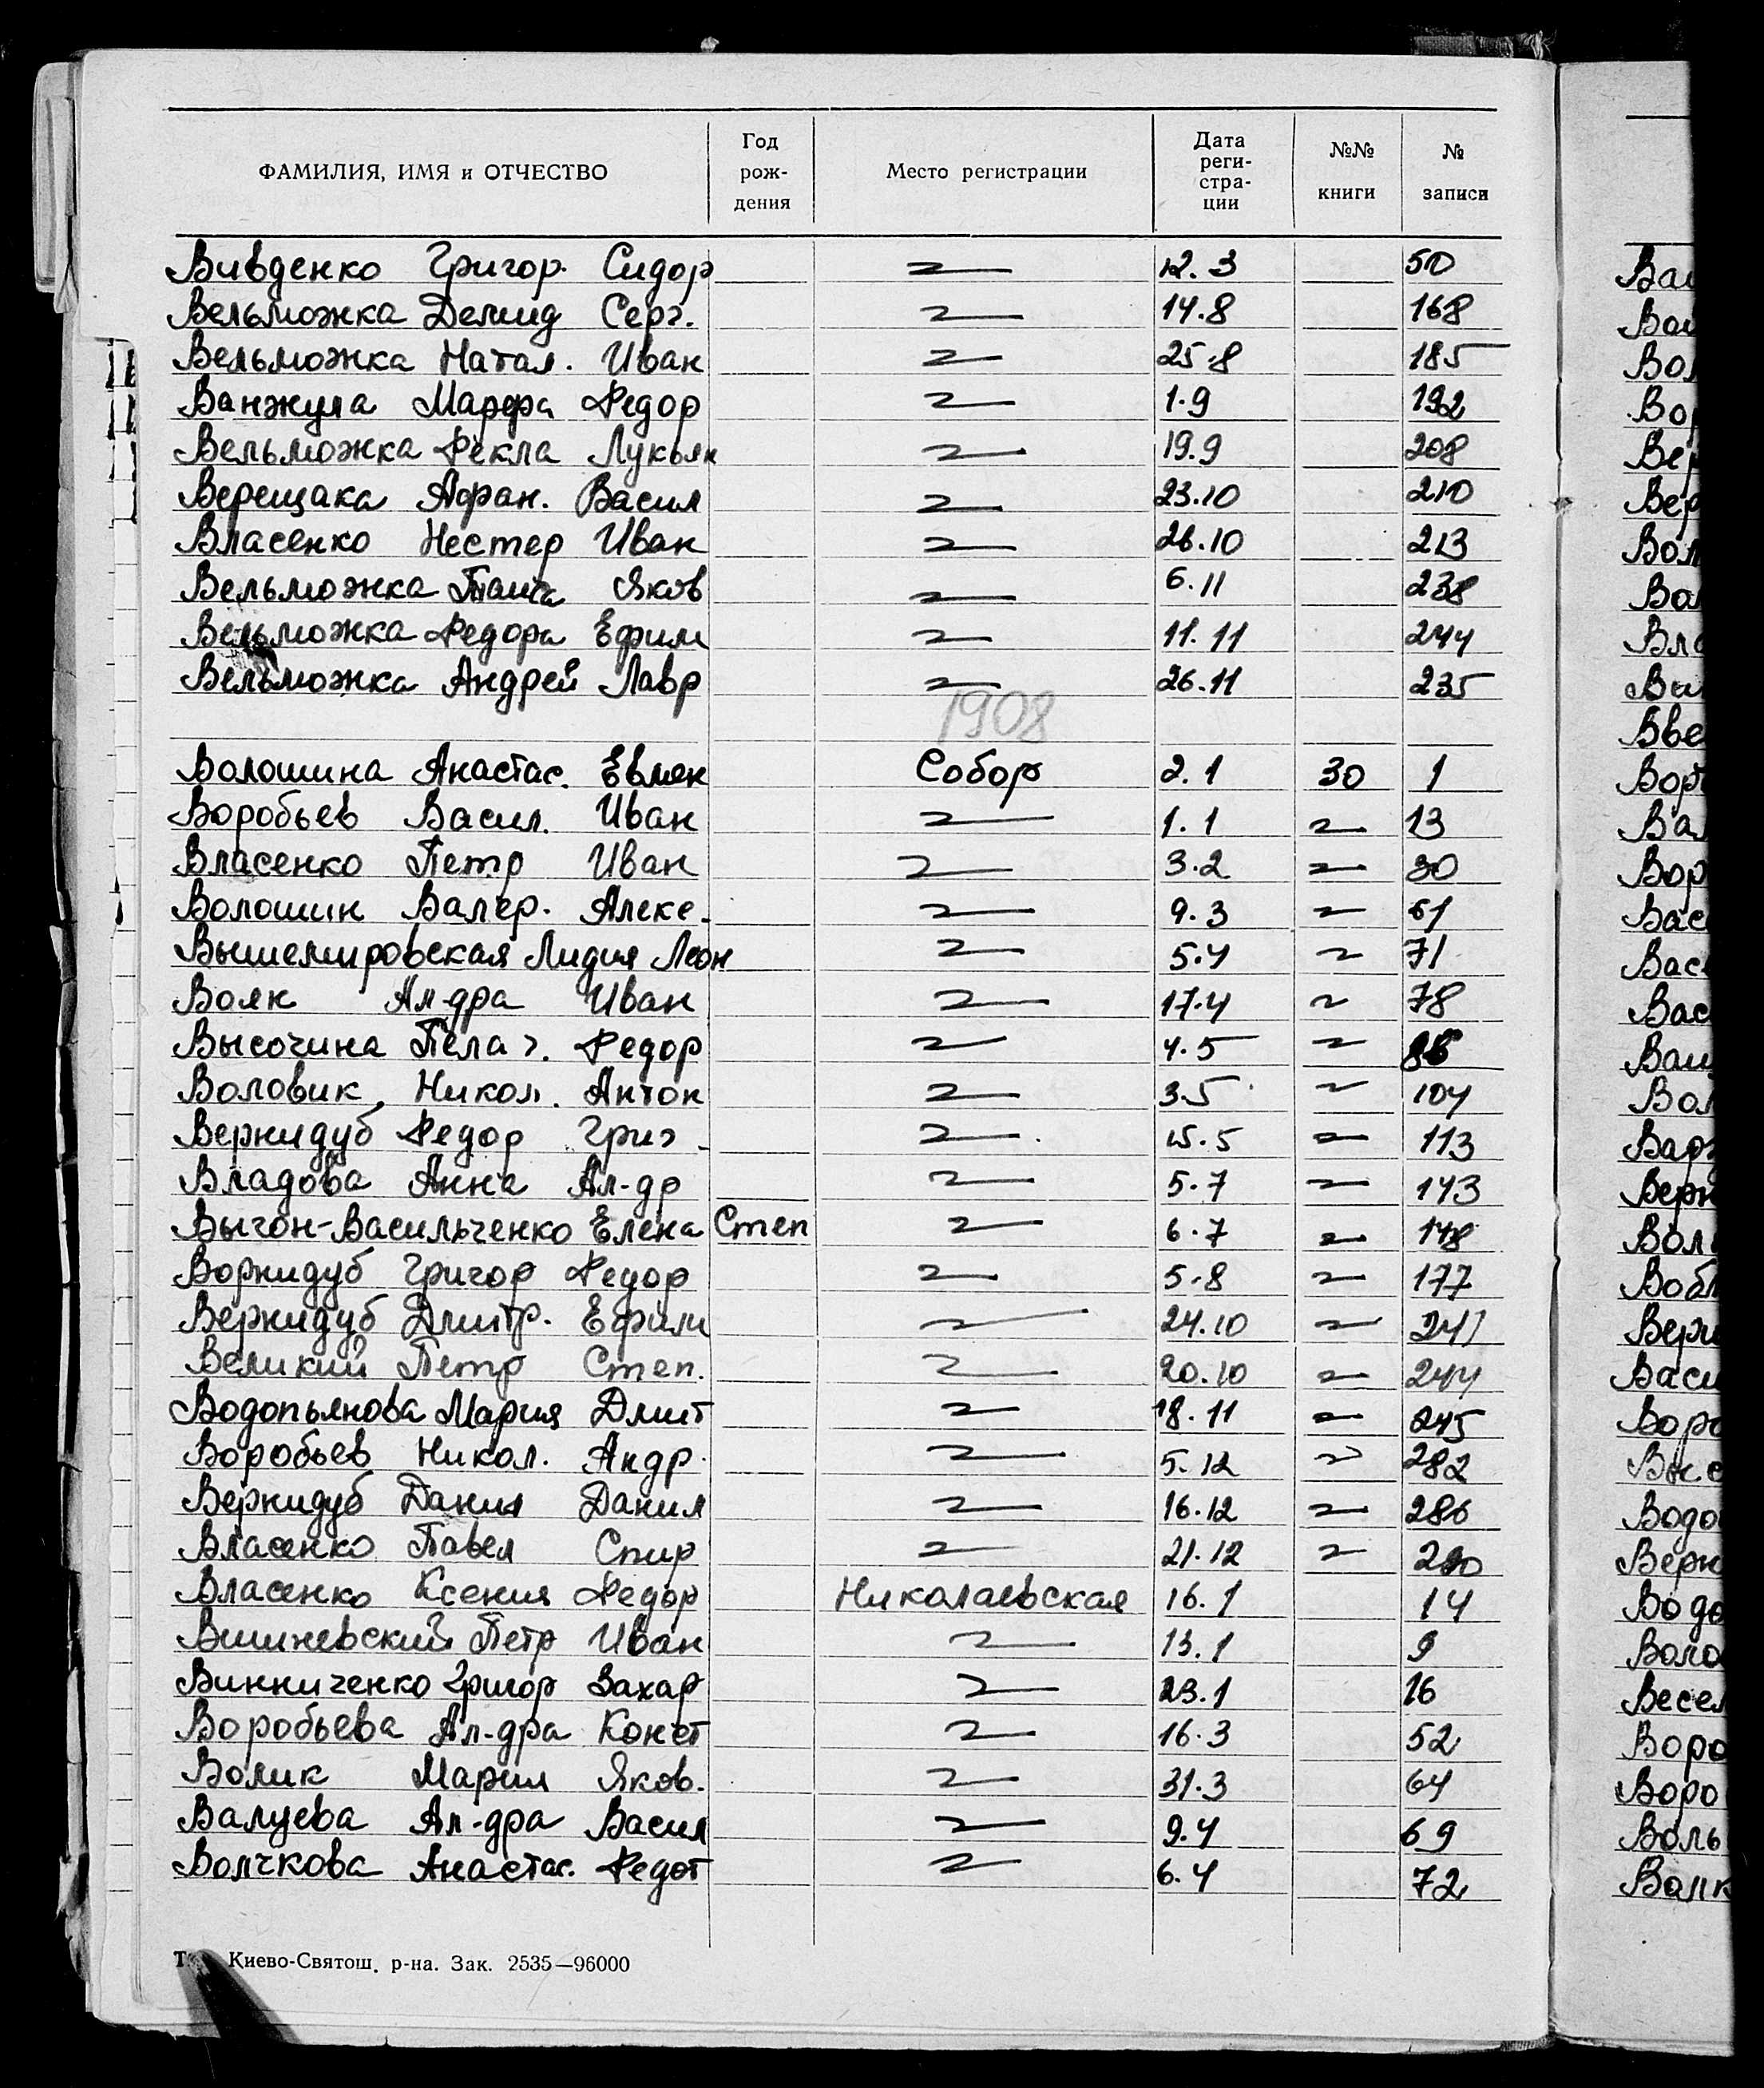 ФАМИЛИЯ, ИМЯ и ОТЧЕСТВО Год рож- дения Место регистрации Дата реги- стра- ции №№ книги № записи
Вивденко Григор. Сидор 〃 12.3 50
Вельможка Демид Серг. 〃 14.8 168
Вельможка Натал. Иван 〃 25.8 185
Ванжула Марфа Федор 〃 1.9 192
Вельможка Фекла Лукьян 〃 19.9 208
Верещака Афан. Васил 〃 23.10 210
Власенко Нестер Иван 〃 26.10 213
Вельможка Яков 〃 6.11 238
Вельможка Федора Ефим 〃 11.11 244
Вельможка Андрей Лавр 〃 26.11 235
1908
Волошина Анастас. Евмен Собор 2.1 30 1
Воробьев Васил. Иван 〃 1.1 〃 13
Власенко Петр Иван 〃 3.2 〃 30
Волошин Валер. Алекс. 〃 9.3 〃 61
Вышемировская Лидия Леон 〃 5.4 〃 71
Вояк Ал-дра Иван 〃 17.4 〃 78
Высочина Пелаг. Федор 〃 4.5 〃
Воловик Никол. Антон 〃 3.5 〃 104
Вернидуб Федор Григ. 〃 15.5 〃 113
Владова Анна Ал-др 〃 5.7 〃 143
Выгон-Васильченко Елена Степ 〃 6.7 〃 148
Вернидуб Григор Федор 〃 5.8 〃 177
Вернидуб Дмитр. Ефим 〃 24.10 〃 241
Великий Петр Степ. 〃 20.10 〃 244
Водопьянова Мария Дмит 〃 18.11 〃 245
Воробьев Никол. Андр. 〃 5.12 〃 282
Вернидуб Данил Данил 〃 16.12 〃 286
Власенко Павел Спир 〃 21.12 〃
Власенко Ксения Федор Николаевская 16.1 14
Вишневский Петр Иван 〃 13.1 9
Винниченко Григор Захар 〃 23.1 16
Воробьева Ал-дра Конст 〃 16.3 52
Волик Мария Яков. 〃 31.3 64
Валуева Ал-дра Васил 〃 9.4 69
Волчкова Анастас. Федот 〃 6.4 72
Киево-Святош. р-на. Зак. 2535—96000